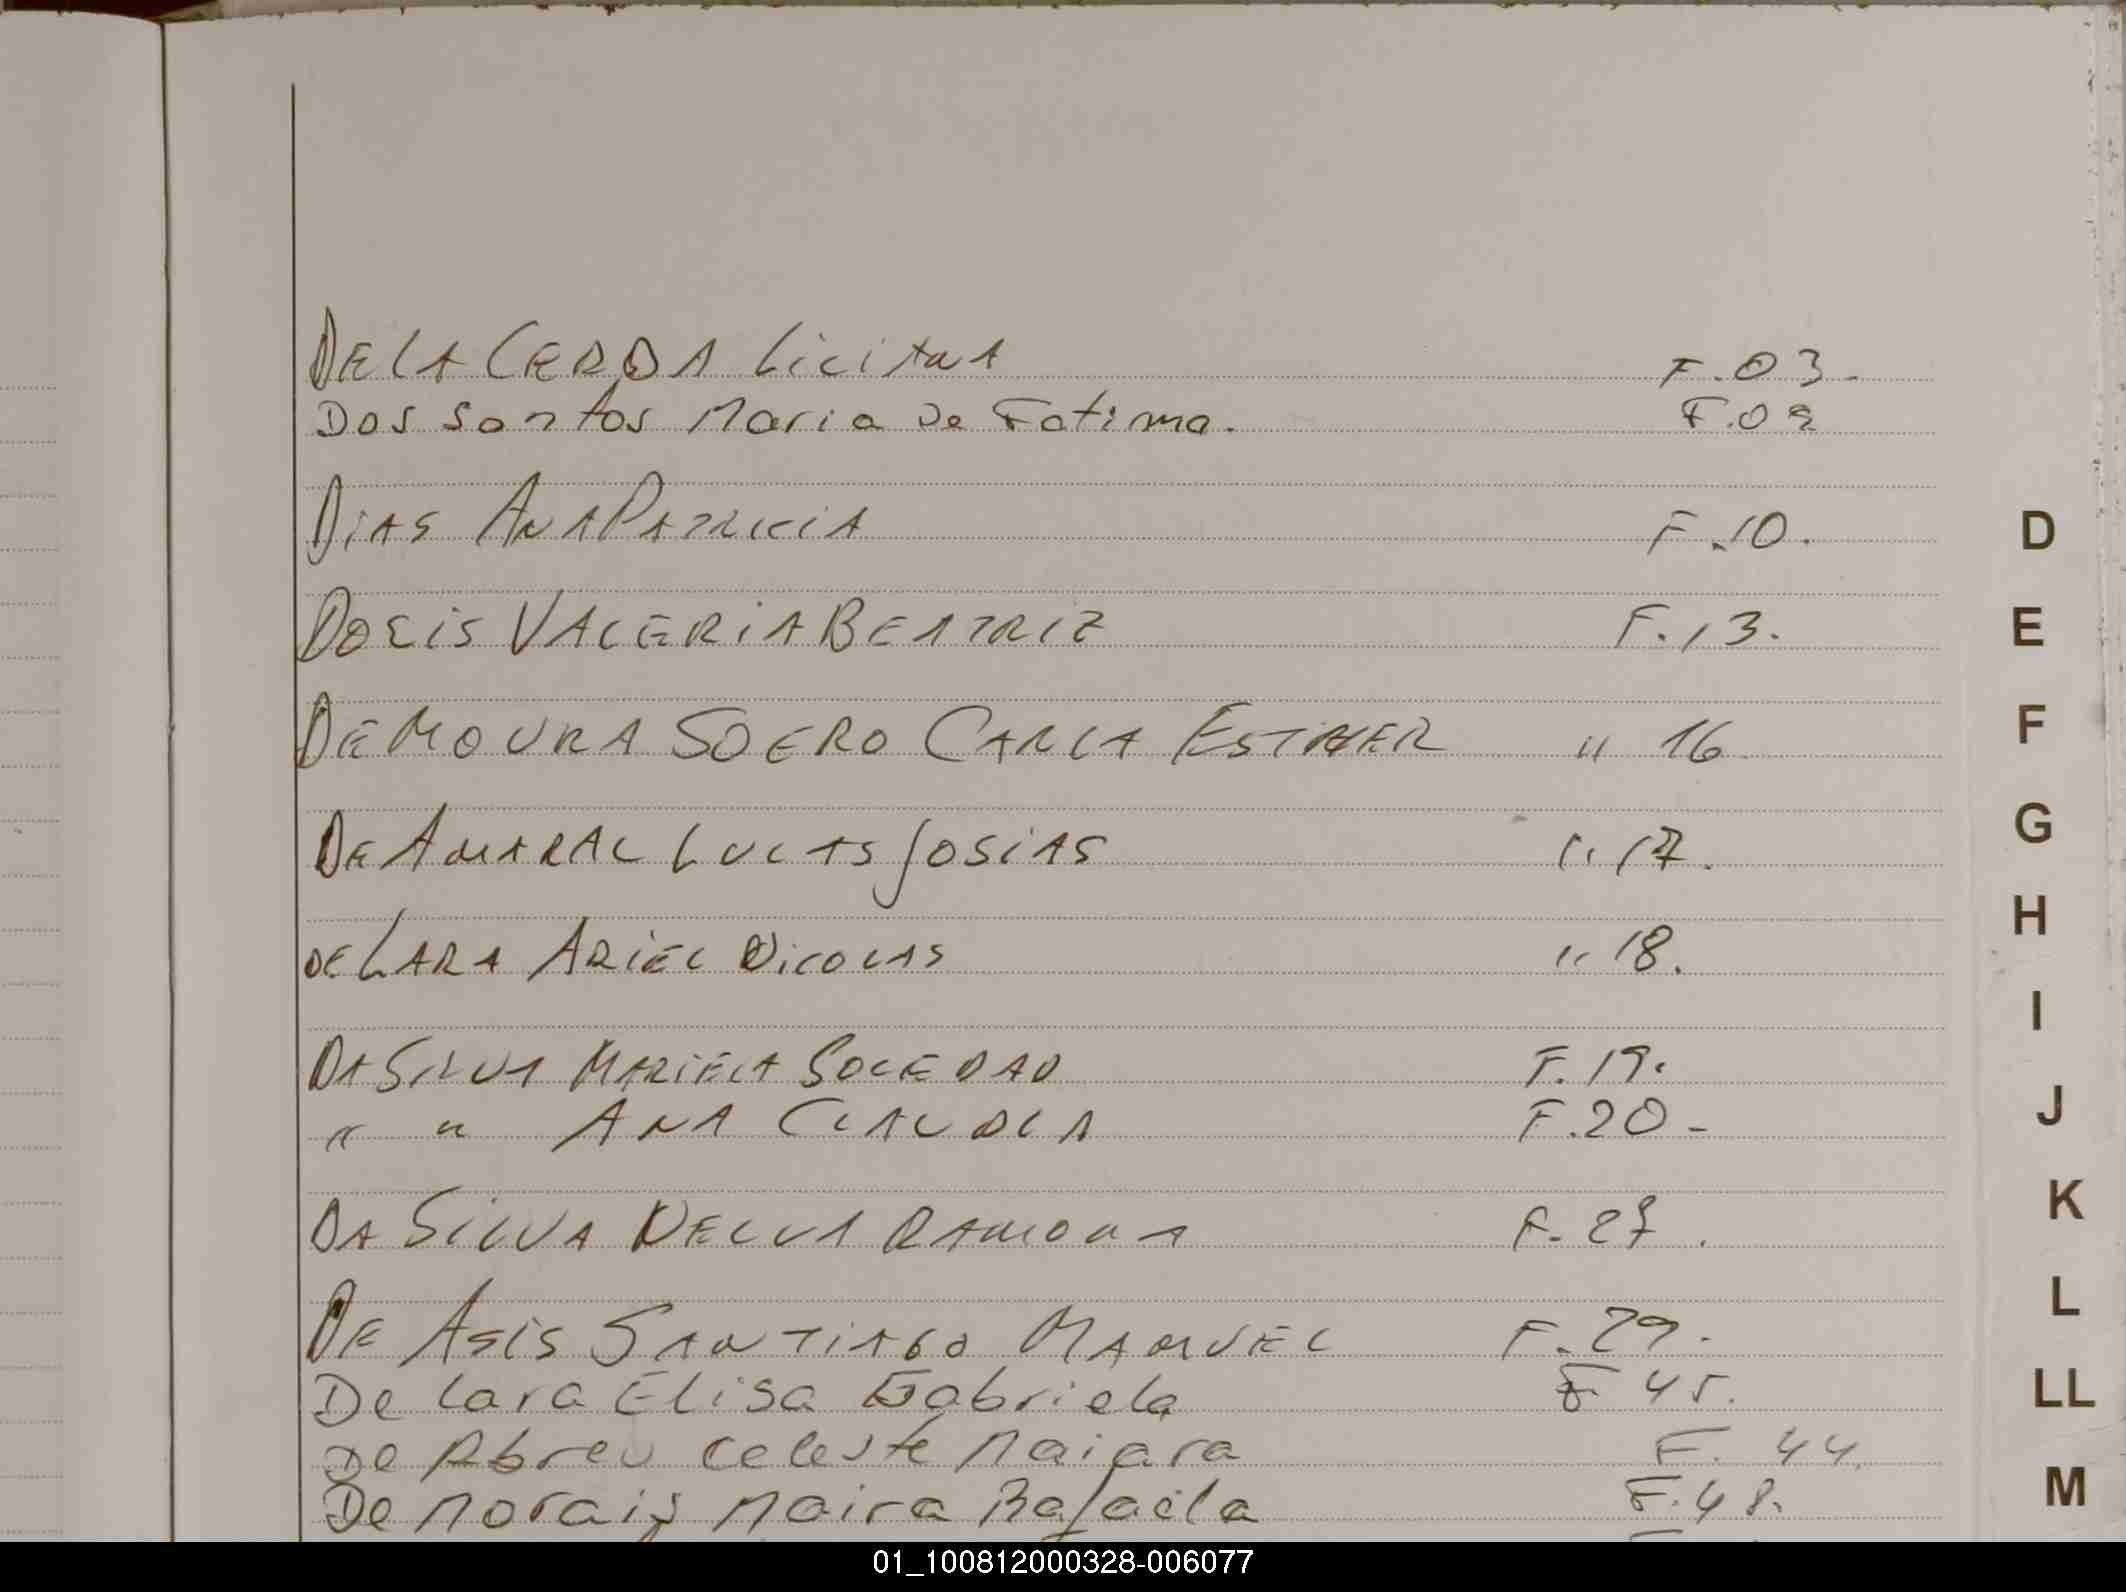 DE LA CERDA Liciana F.03-
Dos Santos Maria De Fatima. F.09
DIAS ANA PATRICIA F.10.
DORIS VALERIA BEATRIZ F.13.
DE MOURA SOERO CARLA ESTHER " 16
DE AMARAL LUCAS JOSIAS " 17.
DE LARA ARIEL NICOLAS " 18.
DA SILVA MARIELA SOLEDAD F.19.
" " ANA CLAUDIA F.20-
DA SILVA NELVA RAMONA F.27.
DE ASIS SANTIAGO MANUEL F.29.
De Lara Elisa Gabriela F 45.
De Abreu Celeste Naiara F. 44.
De Morais Maira Rafaela F.48.
D
E
F
G
H
I
J
K
L
LL
M
01_100812000328-006077